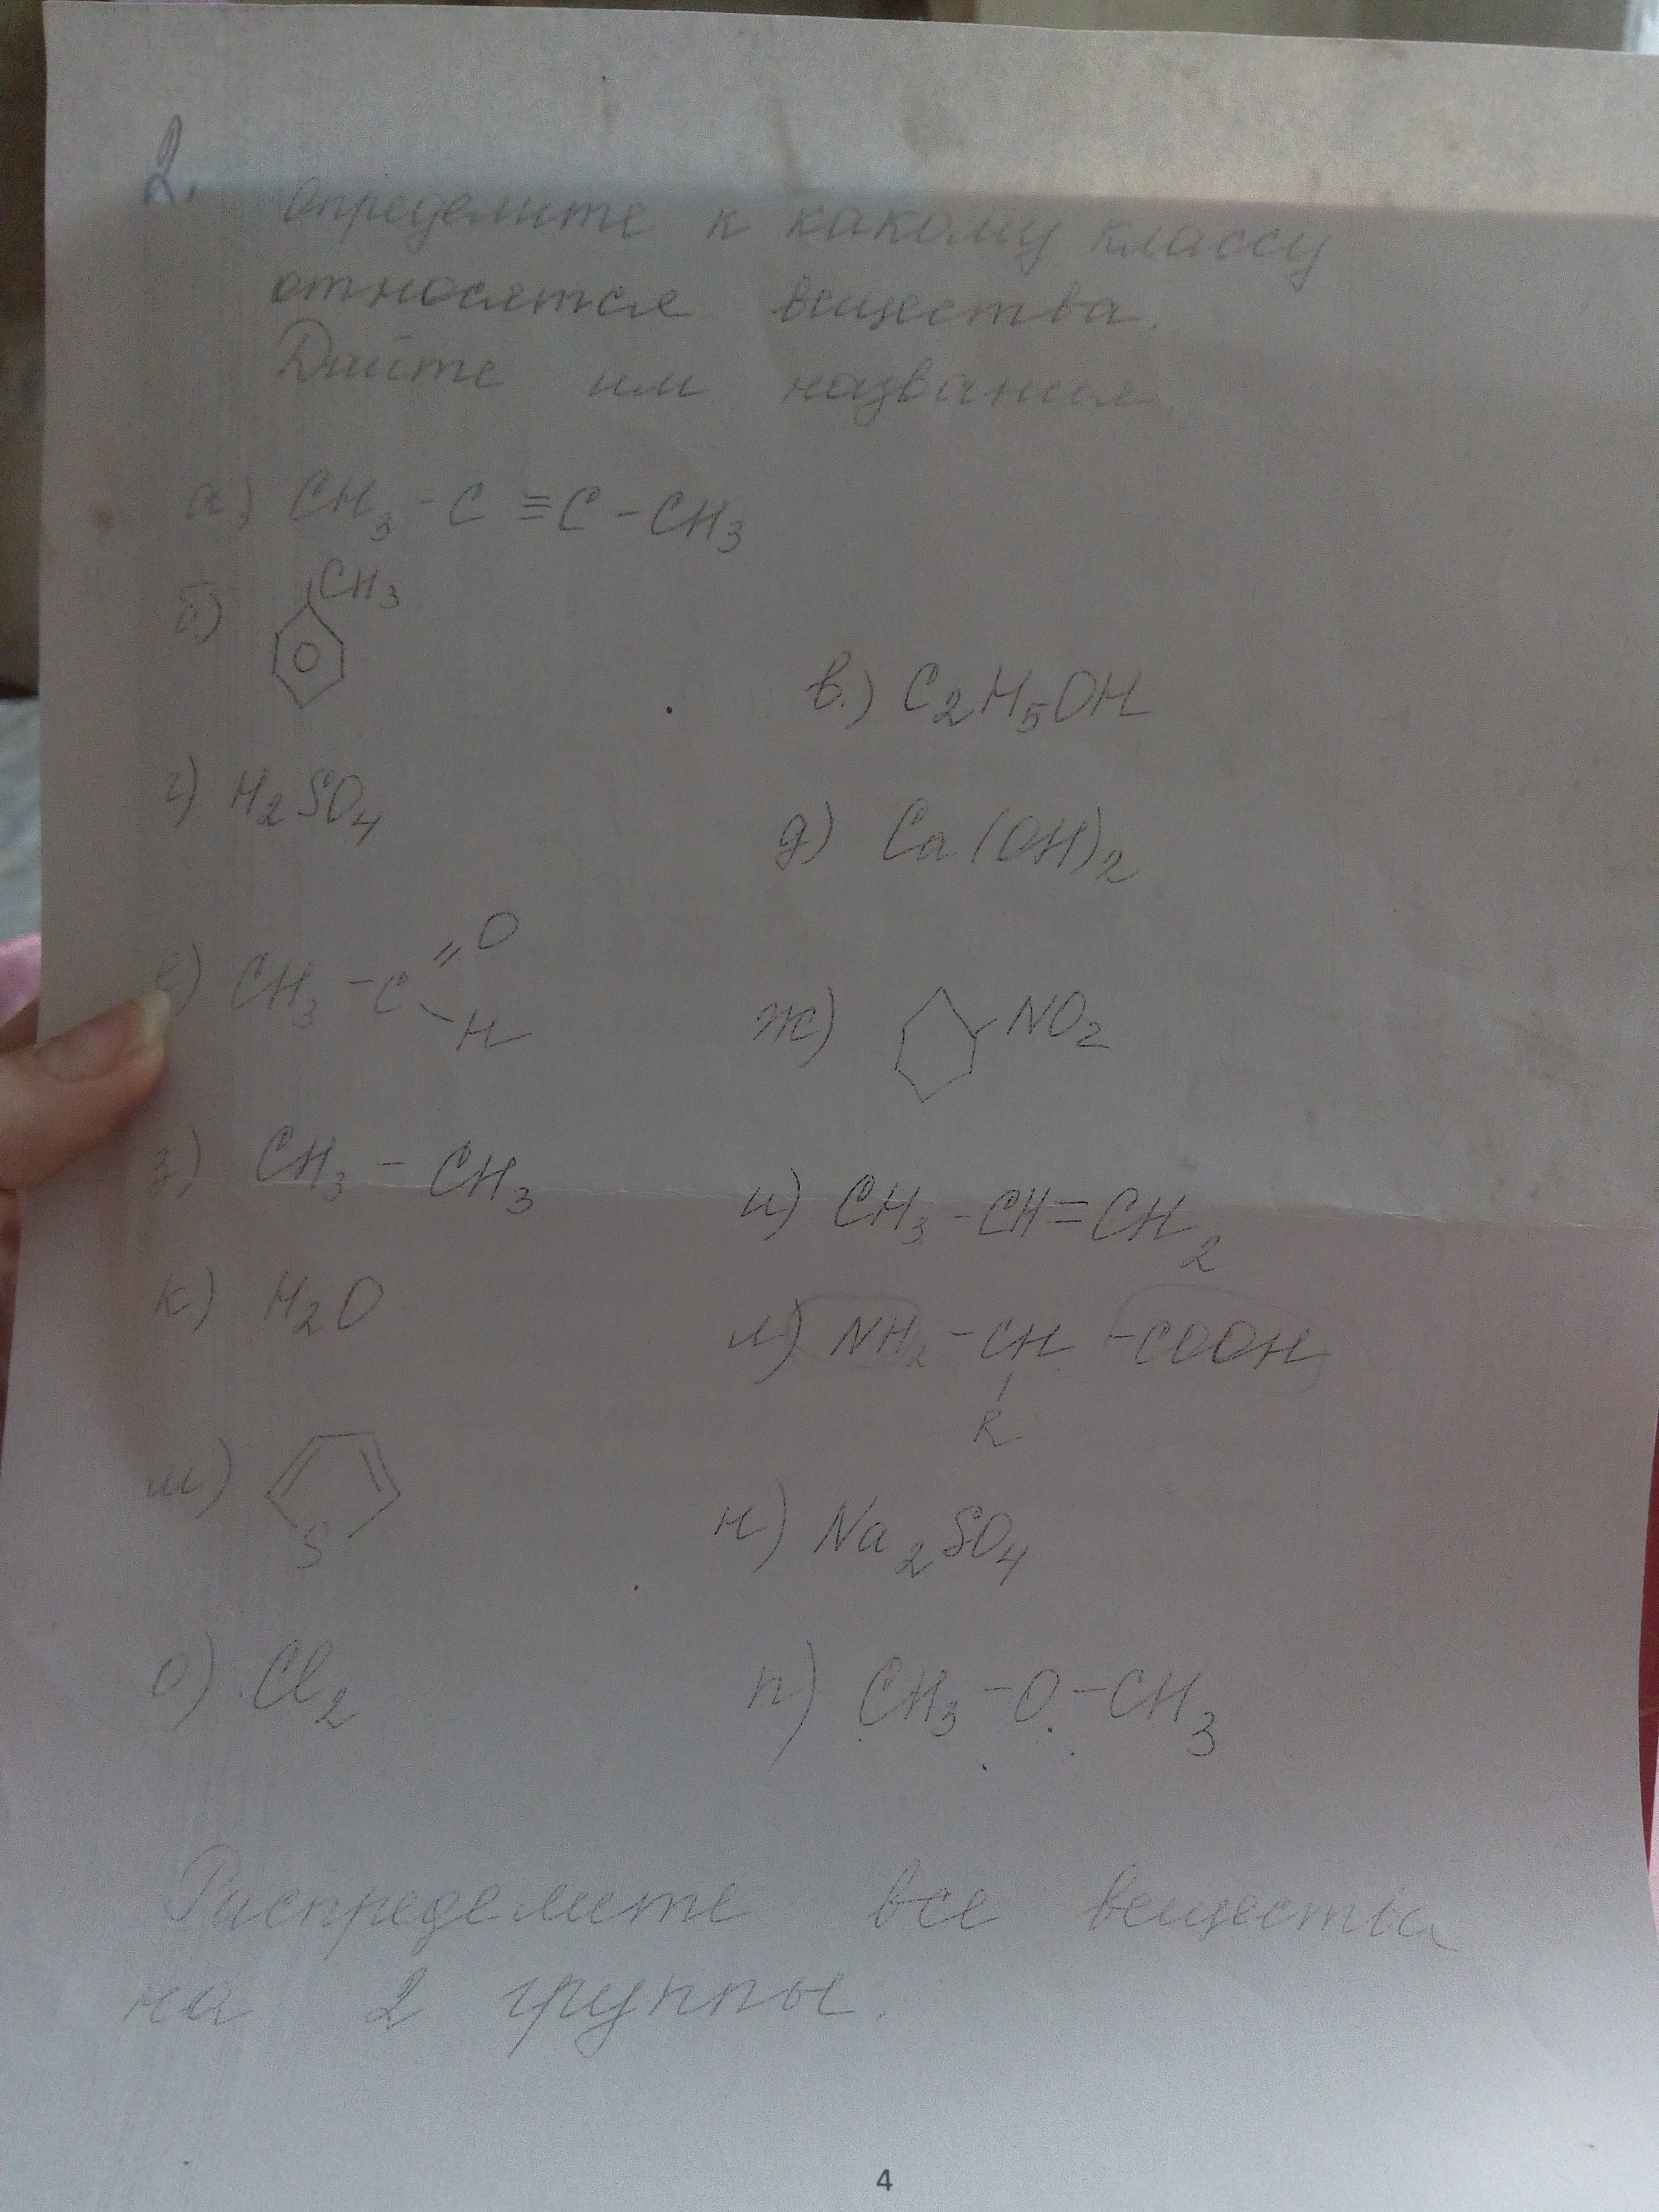 2.
Определите к какому классу
относятся вещества.
Дайте им названия
а) CH3 - C ≡ C - CH3
б) CH3
в.) C2H5OH
г) H2SO4
д) Ca(OH)2
е) CH3 - C =O - H
ж) NO2
з) CH3 - CH3
и) CH3 - CH = CH2
к) H2O
л) NH2 - CH - COOH
R
м) S
н) Na2SO4
о) Cl2
п) CH3 - O - CH3
Распределите все вещества
на 2 группы.
4